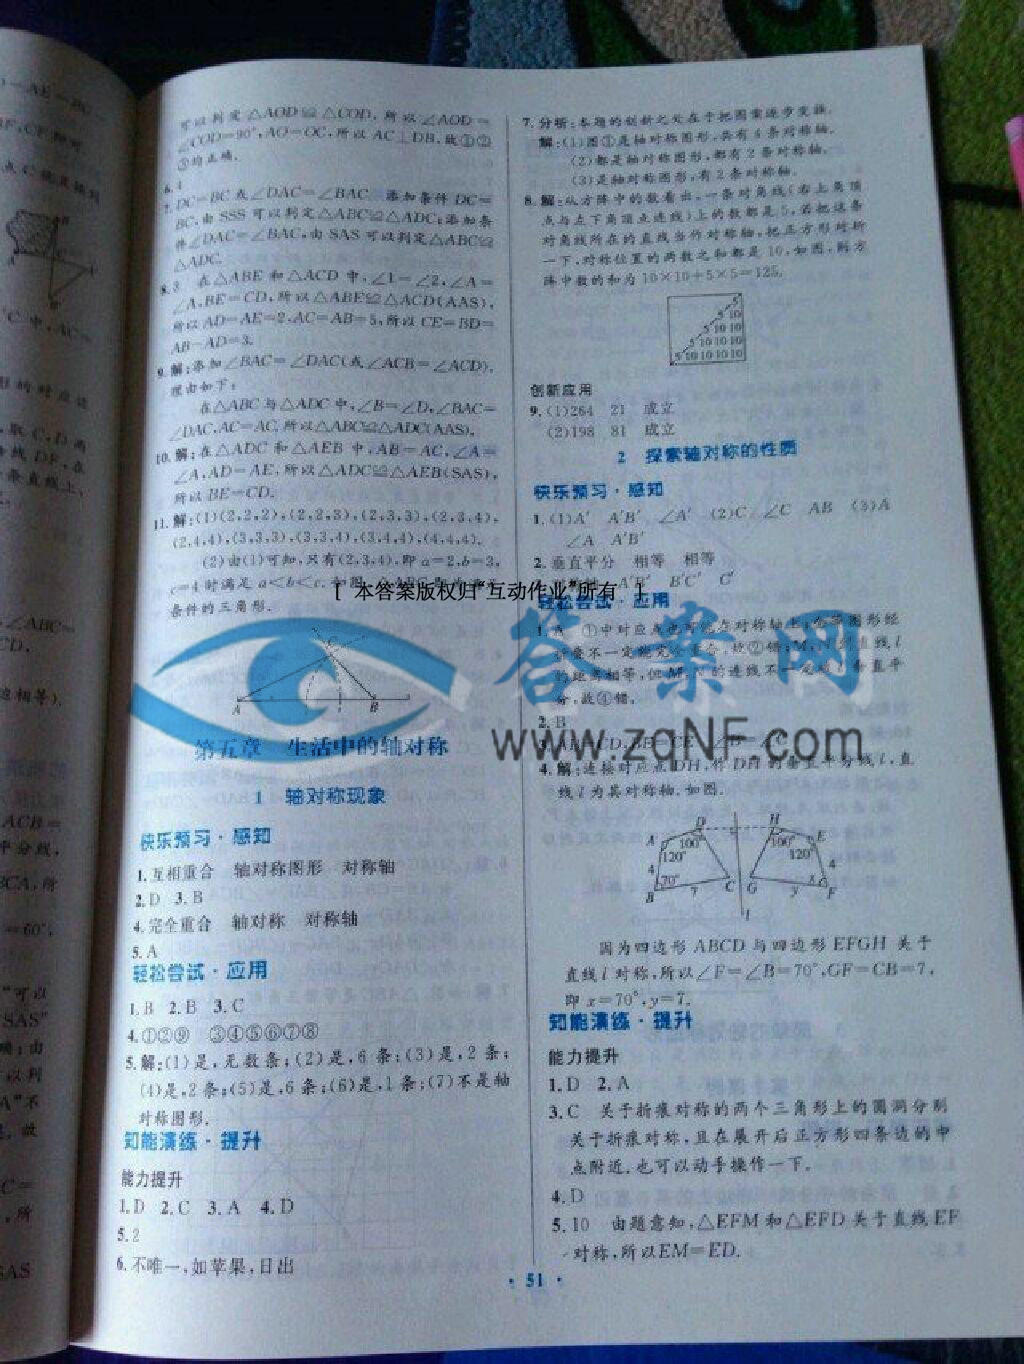 可以判定△AOD≌△COD,所以∠AOD=
∠COD=90°,AO=OC,所以 AC⊥DB,故①②
③均正确.
6.4
7.DC=BC 或∠DAC=∠BAC 添加条件 DC=
BC,由 SSS 可以判定△ABC≌△ADC;添加条
件∠DAC=∠BAC,由 SAS 可以判定△ABC≌
△ADC.
8.3 在△ABE 和△ACD 中,∠1=∠2,∠A=
∠A,BE=CD,所以△ABE≌△ACD(AAS),
所以 AD=AE=2,AC=AB=5,所以 CE=BD=
AB-AD=3.
9.解:添加∠BAC=∠DAC(或∠ACB=∠ACD),
理由如下:
在△ABC 与△ADC 中,∠B=∠D,∠BAC=
∠DAC,AC=AC,所以△ABC≌△ADC(AAS).
10.解:在△ADC 和△AEB 中,AB=AC,∠A=
∠A,AD=AE,所以△ADC≌△AEB(SAS),
所以 BE=CD.
11.解:(1)(2,2,2),(2,2,3),(2,3,3),(2,3,4),
(2,4,4),(3,3,3),(3,3,4),(3,4,4),(4,4,4).
(2)由(1)可知,只有(2,3,4),即 a=2,b=3,
c=4 时满足 a<b<c.如图,△ABC
条件的三角形.
C
A B
第五章 生活中的轴对称
1 轴对称现象
快乐预习·感知
1.互相重合 轴对称图形 对称轴
2.D 3.B
4.完全重合 轴对称 对称轴
5.A
轻松尝试·应用
1.B 2.B 3.C
4.①②⑨ ③④⑤⑥⑦⑧
5.解:(1)是,无数条;(2)是,6条;(3)是,2条;
(4)是,2条;(5)是,6条;(6)是,1条;(7)不是轴
对称图形.
知能演练·提升
能力提升
1.D 2.C 3.A 4.D
5.2
6.不唯一,如苹果,日出
7.分析:本题的创新之处在于把图案逐步变换.
解:(1)图①是轴对称图形,共有4条对称轴.
(2)都是轴对称图形,都有2条对称轴.
(3)是轴对称图形,有2条对称轴.
8.解:从方阵中的数看出,一条对角线(右上角顶
点与左下角顶点连线)上的数都是5,若把这条
对角线所在的直线当作对称轴,把正方形对折
一下,对称位置的两数之和都是10,如图,则方
阵中数的和为10×10+5×5=125.
5
5 10
5 10 10
5 10 10 10
5 10 10 10 10
创新应用
9.(1)264 21 成立
(2)198 81 成立
2 探索轴对称的性质
快乐预习·感知
1.(1)A′ A′B′ ∠A′ (2)C ∠C AB (3)A
∠A A′B′
2.垂直平分 相等 相等
A′B′ B′C′ C′
[ 本答案版权归"互动作业"所有 ]
轻松尝试·应用
1.A ①中对应点也可能在对称轴上;
不一定能完全重合,故②错;M,N到直线 l
的距离相等,但 M,N的连线不一定被 l 垂直平
分,故④错.
2.B
3.AB=CD,
4.解:连接对应点DH,作 DH的垂直平分线 l,直
线 l 为其对称轴.如图.
D H
A 100° 100° E
120° 120°
4 4
70° x
B 7 C G y F
l
因为四边形 ABCD 与四边形 EFGH 关于
直线 l 对称,所以∠F=∠B=70°,GF=CB=7,
即 x=70°,y=7.
知能演练·提升
能力提升
1.D 2.A
3.C 关于折痕对称的两个三角形上的圆洞分别
关于折痕对称,且在展开后正方形四条边的中
点附近.也可以动手操作一下.
4.D
5.10 由题意知,△EFM和△EFD 关于直线 EF
对称,所以EM=ED.
·51·
答案网
www.zqNF.com